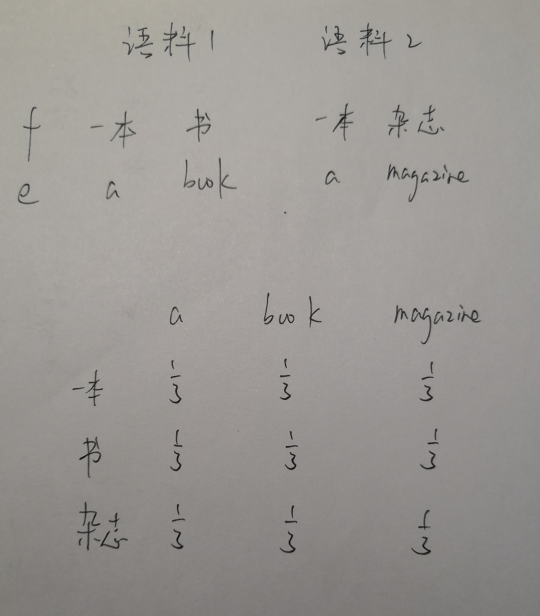 语料1 语料2
f 一本 书 一本 杂志
e a book a magazine
a book magazine
一本 1/3 1/3 1/3
书 1/3 1/3 1/3
杂志 1/3 1/3 1/3